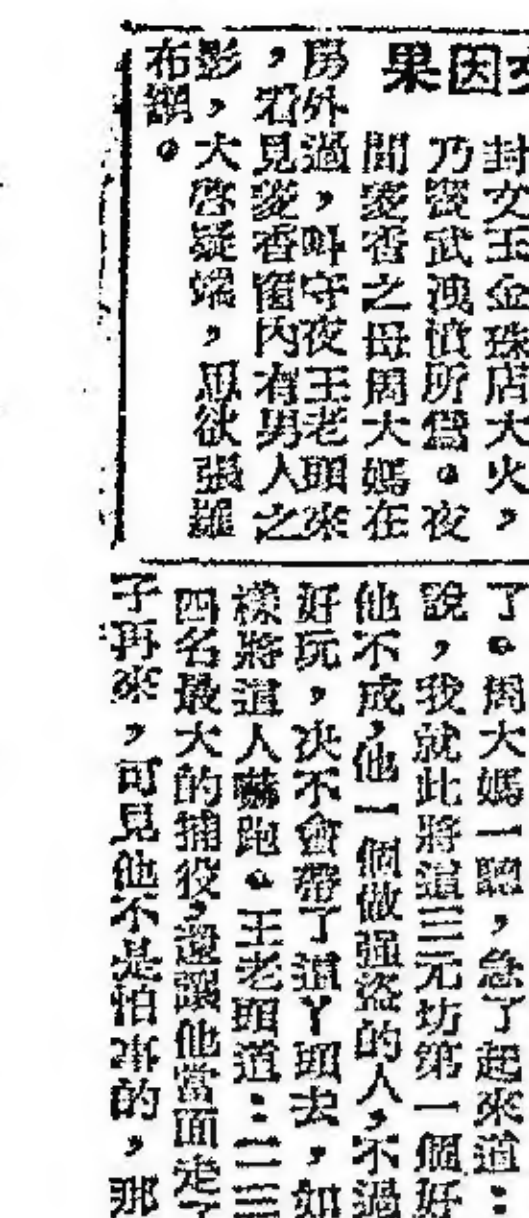 因果
封文王金珠店大火，
乃蜜武洩憤所爲。夜
間菱香之母周大媽在
房外過，叫守夜王老頭來
，看見菱香窗內有男人之
影，大啓疑端，思欲張羅
布
了。周大媽一聽，急了起來道：
說，我就此將這三元坊第一個好
他不成，他一個做强盜的人，不過
好玩，决不會帶了這丫頭去，如
樣將這人嚇跑。王老頭道：二三
四名最大的捕役，還讓他當面走了
子再來，可見他不是怕事的，那